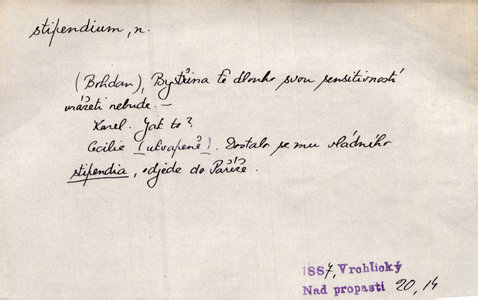 stipendium, n.
(Bohdan), Bystřina tě dlouho svou sensitivností
urážeti nebude. —
Karel. Jak to?
Cecilie (ukvapeně). Dostalo se mu vládního
stipendia, odjede do Paříže.
1887, Vrchlický
Nad propastí 20, 14